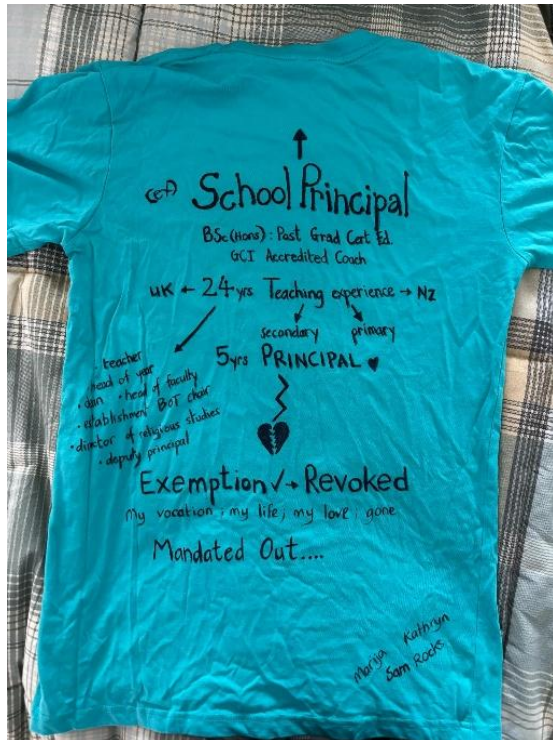 (ex) School Principal
BSc (Hons) : Post Grad Cert Ed.
GCI Accredited Coach
UK ← 24 yrs Teaching experience → NZ
secondary primary
5 yrs PRINCIPAL ♥
• teacher
• head of year
• dean • head of faculty
• establishment BOT chair
• director of religious studies
• deputy principal
Exemption ✓ → Revoked
My vocation ; my life ; my love ; gone
Mandated Out....
Marija Kathryn
Sam Rocks